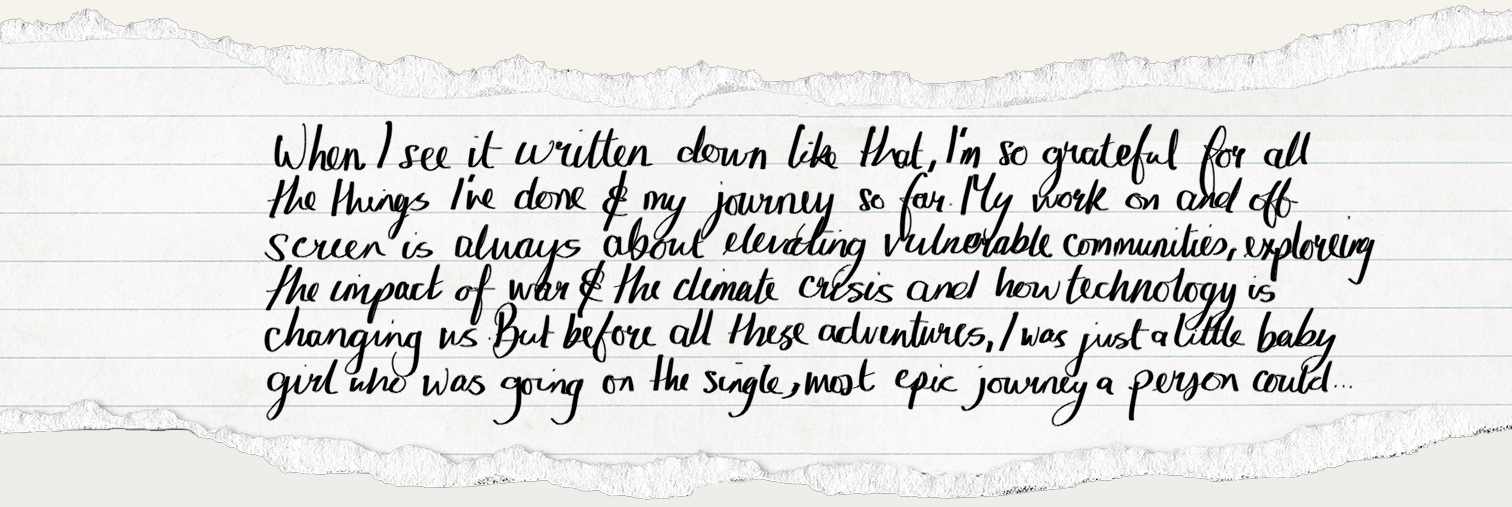 When I see it written down like that, I'm so grateful for all
the things I've done & my journey so far. My work on and off-
screen is always about elevating vulnerable communities, exploring
the impact of war & the climate crisis and how technology is
changing us. But before all these adventures, I was just a little baby
girl who was going on the single, most epic journey a person could...